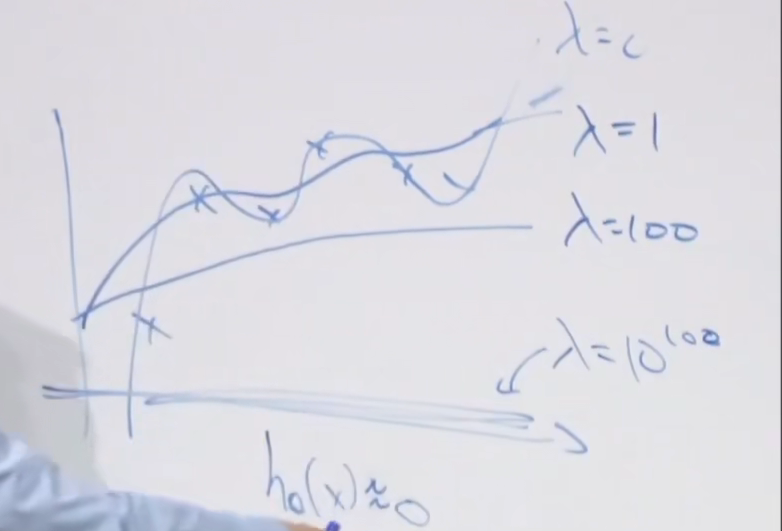 λ=0
λ=1
λ=100
λ=10¹⁰⁰
h₀(x)≈0